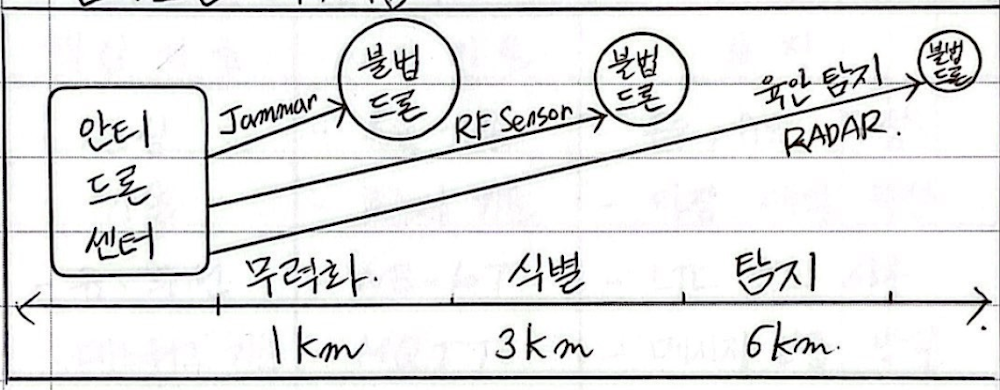 안티
드론
센터
Jammar
불법
드론
RF Sensor
불법
드론
육안 탐지
RADAR.
불법
드론
무력화.
식별
탐지
1km
3km
6km.